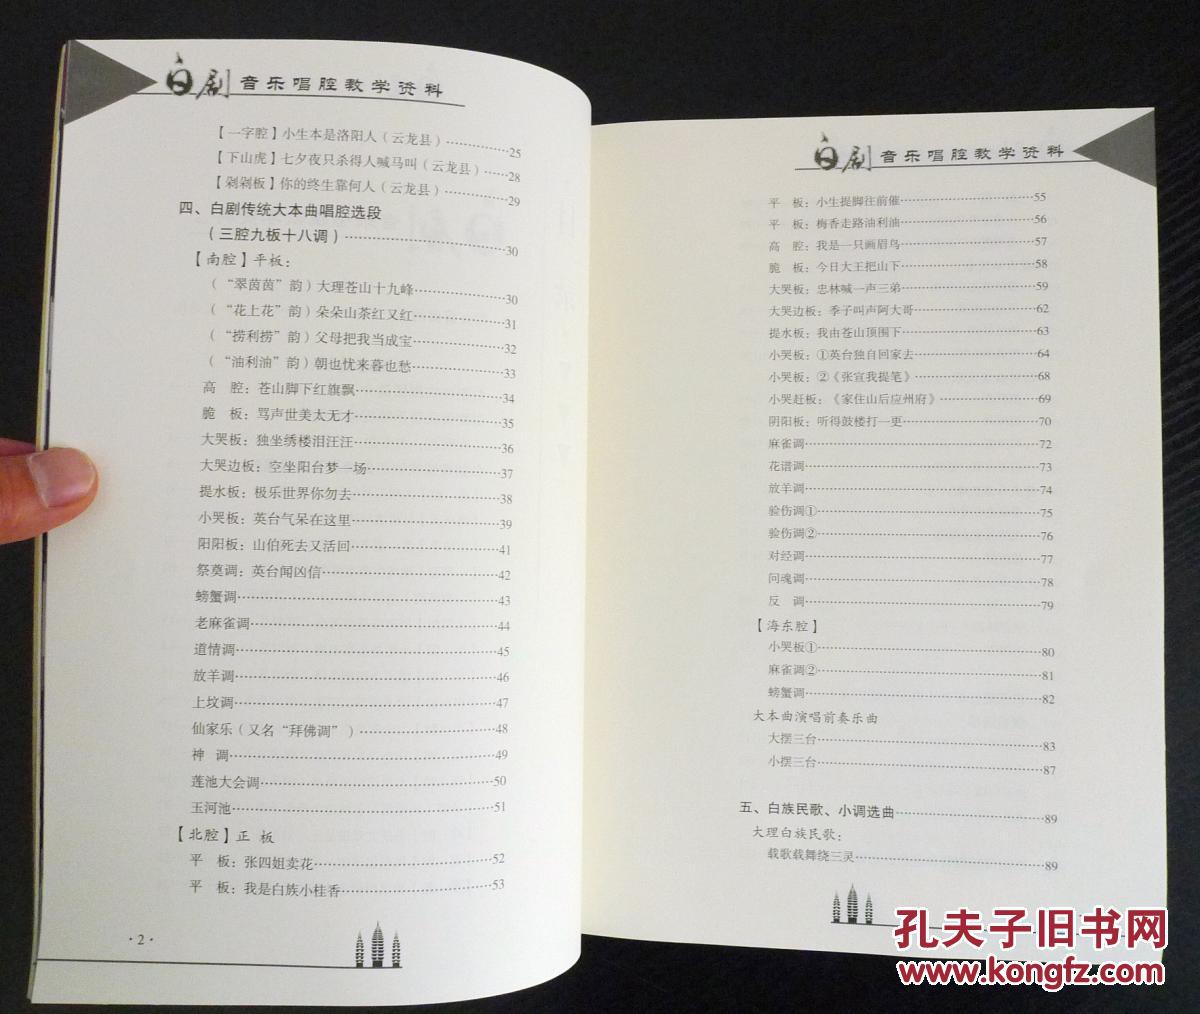 白剧 音乐唱腔教学资料
【一字腔】小生本是洛阳人（云龙县）……25
【下山虎】七夕夜只杀得人喊马叫（云龙县）……28
【剁剁板】你的终生靠何人（云龙县）……29
四、白剧传统大本曲唱腔选段
（三腔九板十八调）……30
【南腔】平板：
（“翠茵茵”韵）大理苍山十九峰……30
（“花上花”韵）朵朵山茶红又红……31
（“捞利捞”韵）父母把我当成宝……32
（“油利油”韵）朝也忧来暮也愁……33
高 腔：苍山脚下红旗飘……34
脆 板：骂声世美太无才……35
大哭板：独坐绣楼泪汪汪……36
大哭边板：空坐阳台梦一场……37
提水板：极乐世界你勿去……38
小哭板：英台气呆在这里……39
阳阳板：山伯死去又活回……41
祭奠调：英台闻凶信……42
螃蟹调……43
老麻雀调……44
道情调……45
放羊调……46
上坟调……47
仙家乐（又名“拜佛调”）……48
神 调……49
莲池大会调……50
玉河池……51
【北腔】正 板
平 板：张四姐卖花……52
平 板：我是白族小桂香……53
·2·
白剧 音乐唱腔教学资料
平 板：小生提脚往前催……55
平 板：梅香走路油利油……56
高 腔：我是一只画眉鸟……57
脆 板：今日大王把山下……58
大哭板：忠林喊一声三弟……59
大哭边板：季子叫声阿大哥……62
提水板：我由苍山顶围下……63
小哭板：①英台独自回家去……64
小哭板：②《张宣我提笔》……68
小哭赶板：《家住山后应州府》……69
阴阳板：听得鼓楼打一更……70
麻雀调……72
花谱调……73
放羊调……74
验伤调①……75
验伤调②……76
对经调……77
问魂调……78
反 调……79
【海东腔】
小哭板①……80
麻雀调②……81
螃蟹调……82
大本曲演唱前奏乐曲
大摆三台……83
小摆三台……87
五、白族民歌、小调选曲……89
大理白族民歌：
载歌载舞绕三灵……89
孔夫子旧书网
www.kongfz.com